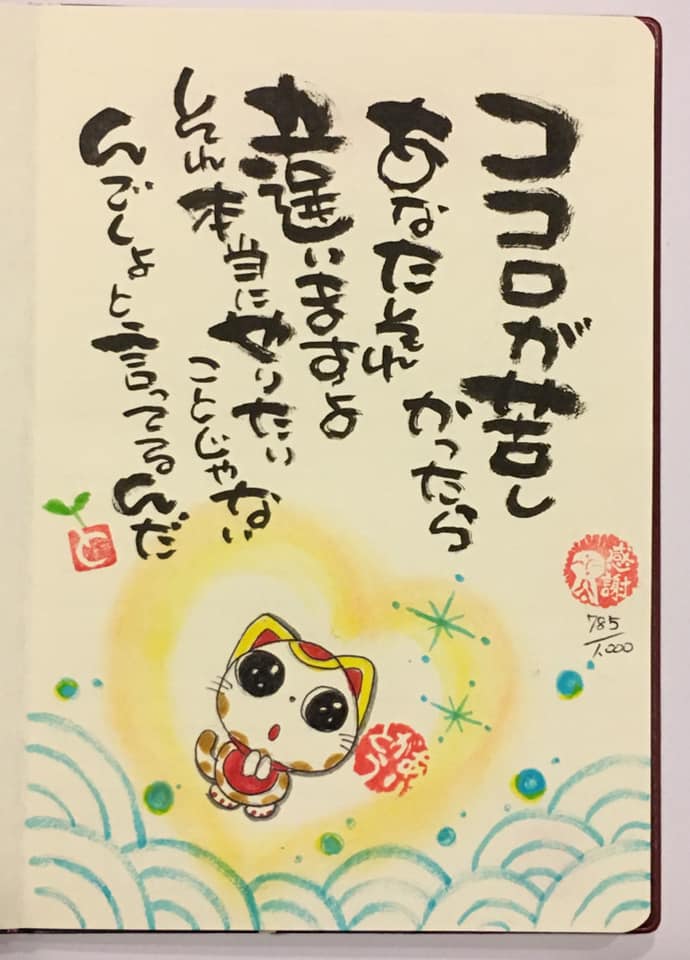 ココロが苦し
かったら
あなたそれ
違いますよ
それ本当にやりたい
ことじゃない
んでしょと言ってるんだ
と
感謝
785/1,000